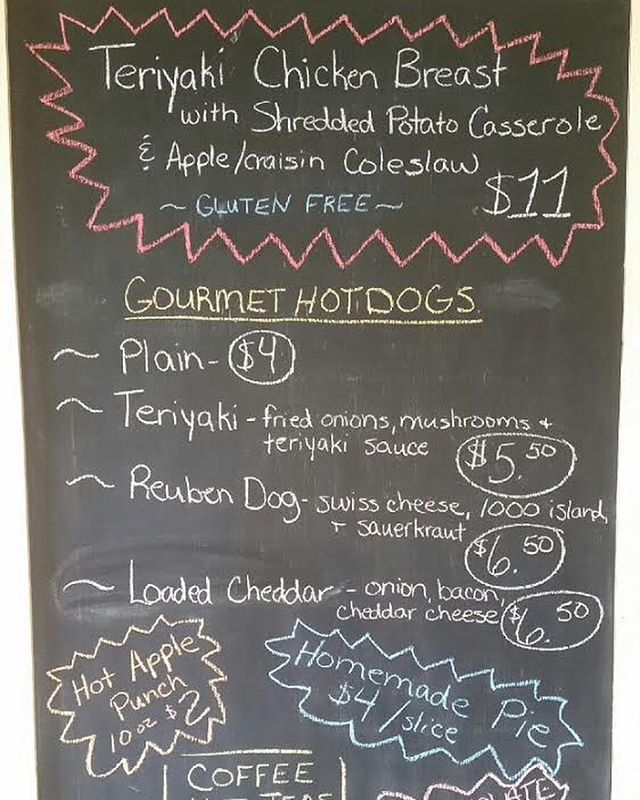 Teriyaki Chicken Breast
with Shredded Potato Casserole
& Apple/craisin Coleslaw
~ GLUTEN FREE ~ $11
GOURMET HOT DOGS
~ Plain - $4
~ Teriyaki - fried onions, mushrooms +
teriyaki sauce $5.50
~ Reuben Dog - swiss cheese, 1000 island,
+ sauerkraut $6.50
~ Loaded Cheddar - onion, bacon,
cheddar cheese $6.50
Hot Apple
Punch
10 oz $2
Homemade Pie
$4/slice
COFFEE